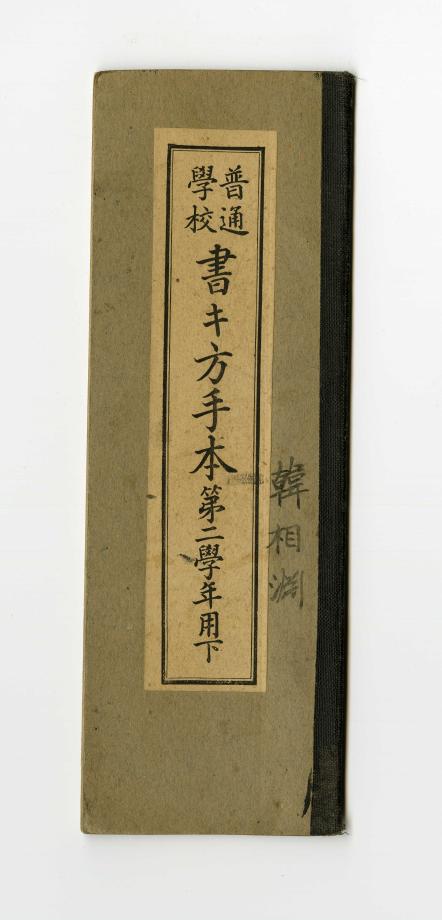 普通學校
書キ方手本第二學年用下
韓相淵